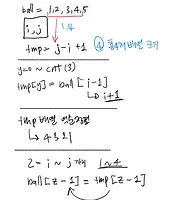 ball = 1,2,3,4,5
i, j
1,4
tmp = j-i+1
y=0 ~ cnt(3)
tmp[y] = ball[i-1]
↳ i+1
tmp 배열
↳ 4321
z = i ~ j 까지 1~4
ball[z-1] = tmp[z-1]